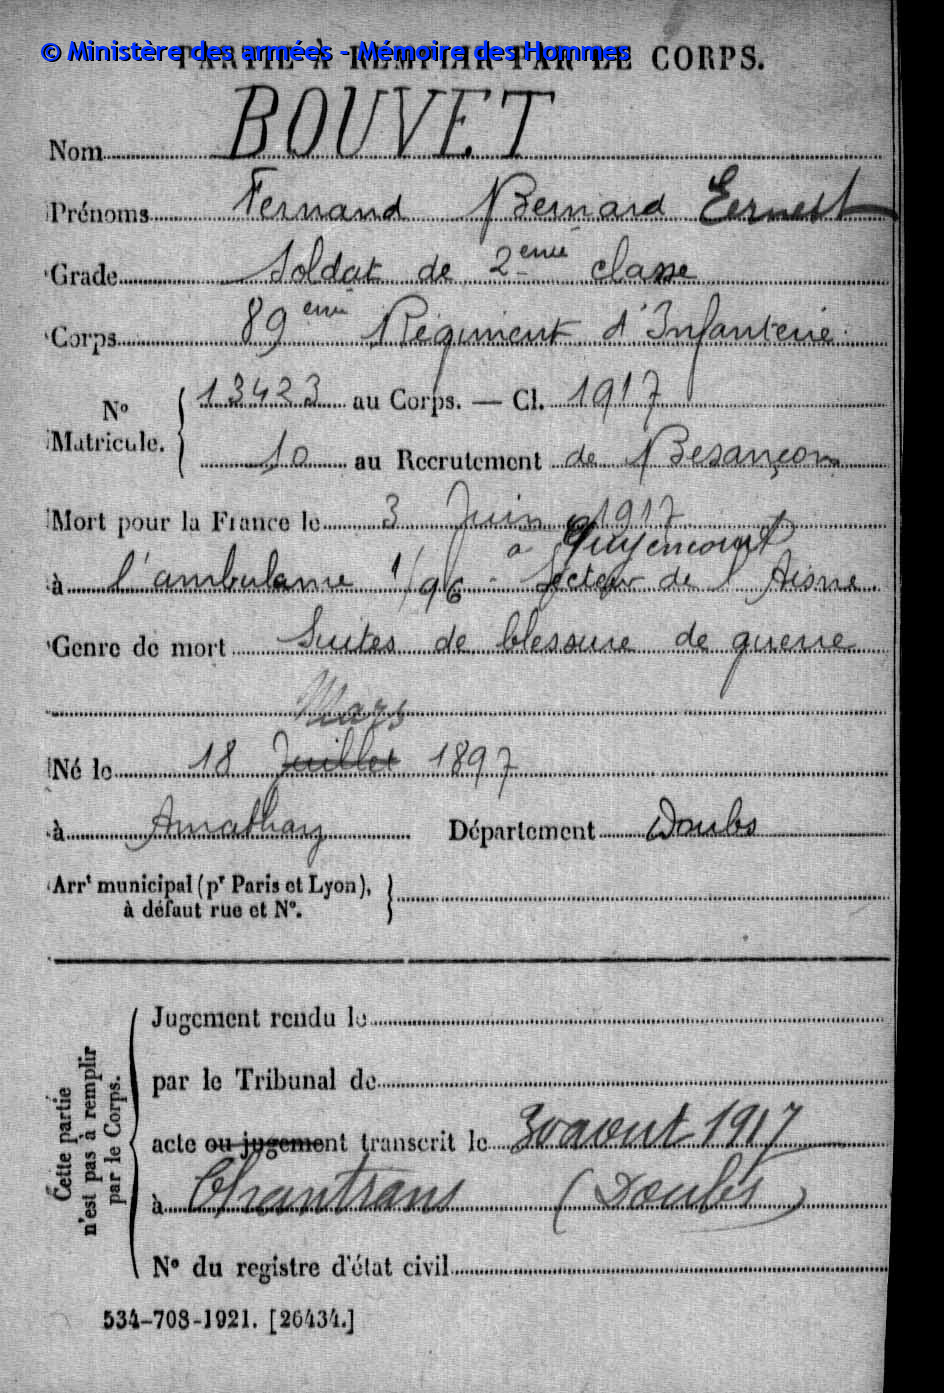 © Ministère des armées - Mémoire des Hommes
PARTIE À REMPLIR PAR LE CORPS.
Nom BOUVET
Prénoms Fernand Bernard Ernest
Grade Soldat de 2eme classe
Corps 89eme Régiment d'Infanterie
No Matricule. { 13423 au Corps. — Cl. 1917
10 au Recrutement de Besançon
Mort pour la France le 3 Juin 1917
à Guyencourt
à l'ambulance 1/96 - Secteur de l'Aisne
Genre de mort Suites de blessure de guerre
Mars
Né le 18 Juillet 1897
à Amathay Département Doubs
Arrt municipal (pr Paris et Lyon), à défaut rue et No. }
Cette partie n'est pas à remplir par le Corps.
Jugement rendu le
par le Tribunal de
acte ou jugement transcrit le 30 aout 1917
à Chantrans (Doubs)
No du registre d'état civil
534-708-1921. [26434.]